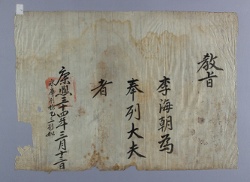 教旨
李海朝爲
奉列大夫
者
康熙三十四年三月十三日